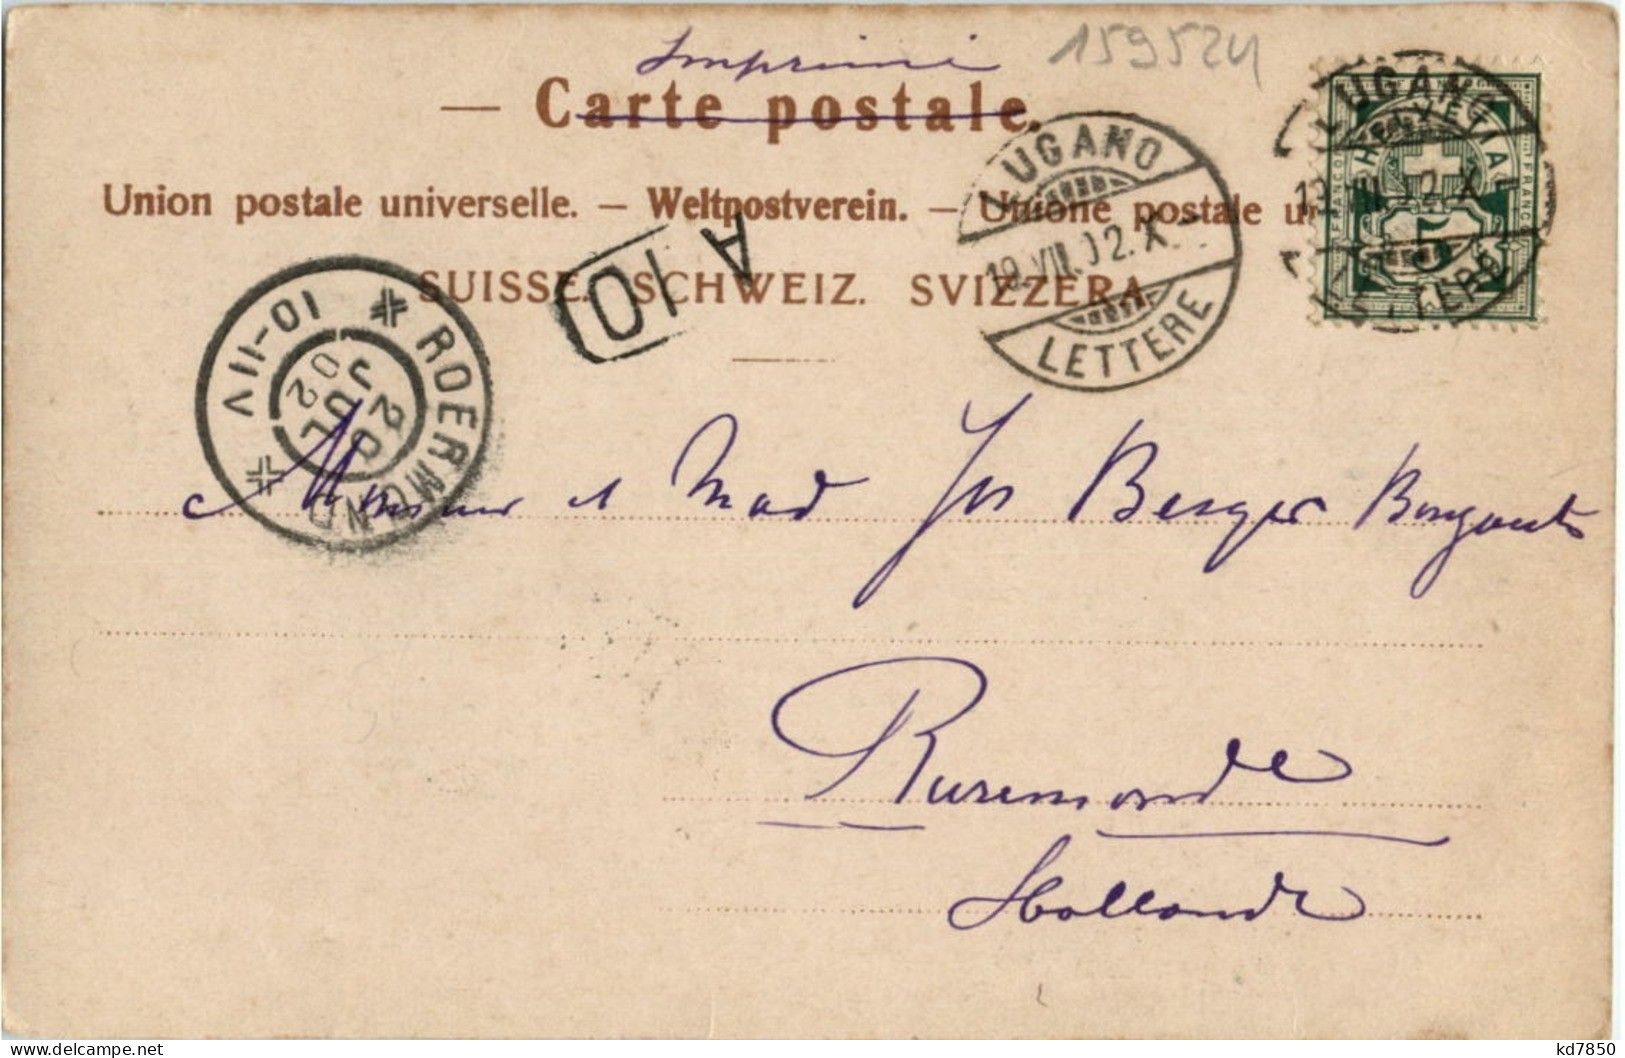 Imprimé
159524
— Carte postale.
Union postale universelle. — Weltpostverein. — Unione postale un
SUISSE. SCHWEIZ. SVIZZERA
LUGANO
19.VII.02.X-
LETTERE
LUGANO
19.VII.02.X-
LETTERE
HELVETIA
FRANCO
FRANCO
5
A
10
ROERMOND
20 JUL 02
10-11V
Monsieur et Mad Jos Berger Bongaerts
Ruremonde
Hollande
kd7850